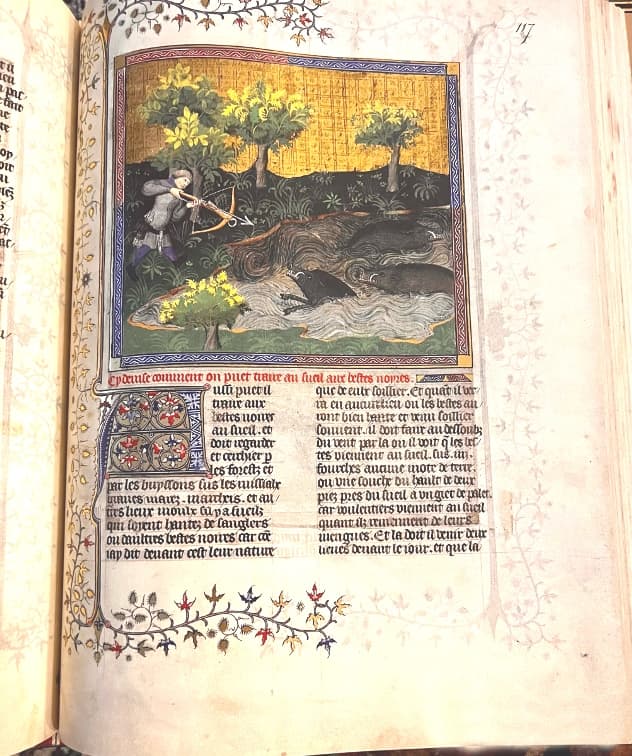 117
Cy deuise comment on puet traire au sueil aux bestes noires.
Aussi puet il
traire aux
bestes noires
au sueil. et
doit regarder
et cerchier p
les forestz et
par les buyssons sus les
maues marez . et au
tres lieux moulx sil y a sueilz
qui soyent hantez de sangliers
ou daultres bestes noires car ce
iay dit deuant cest leur nature
que de eulx soillier. Et quant il ver
ra en aucun lieu ou les bestes au
ront bien hante et venu soillier
souuent. il doit faire au dessoubz
du vent par la ou il voit q̄ les bes
tes viennent au sueil. sus .iii.
fourches aucune mote de terre.
ou vne souche du hault de deux
piez pres du sueil a vn giet de palet.
car voulentiers viennent au sueil
quant ilz reuiennent de leurs
mengues. Et la doit il venir deux
lieues deuant le iour. et que la